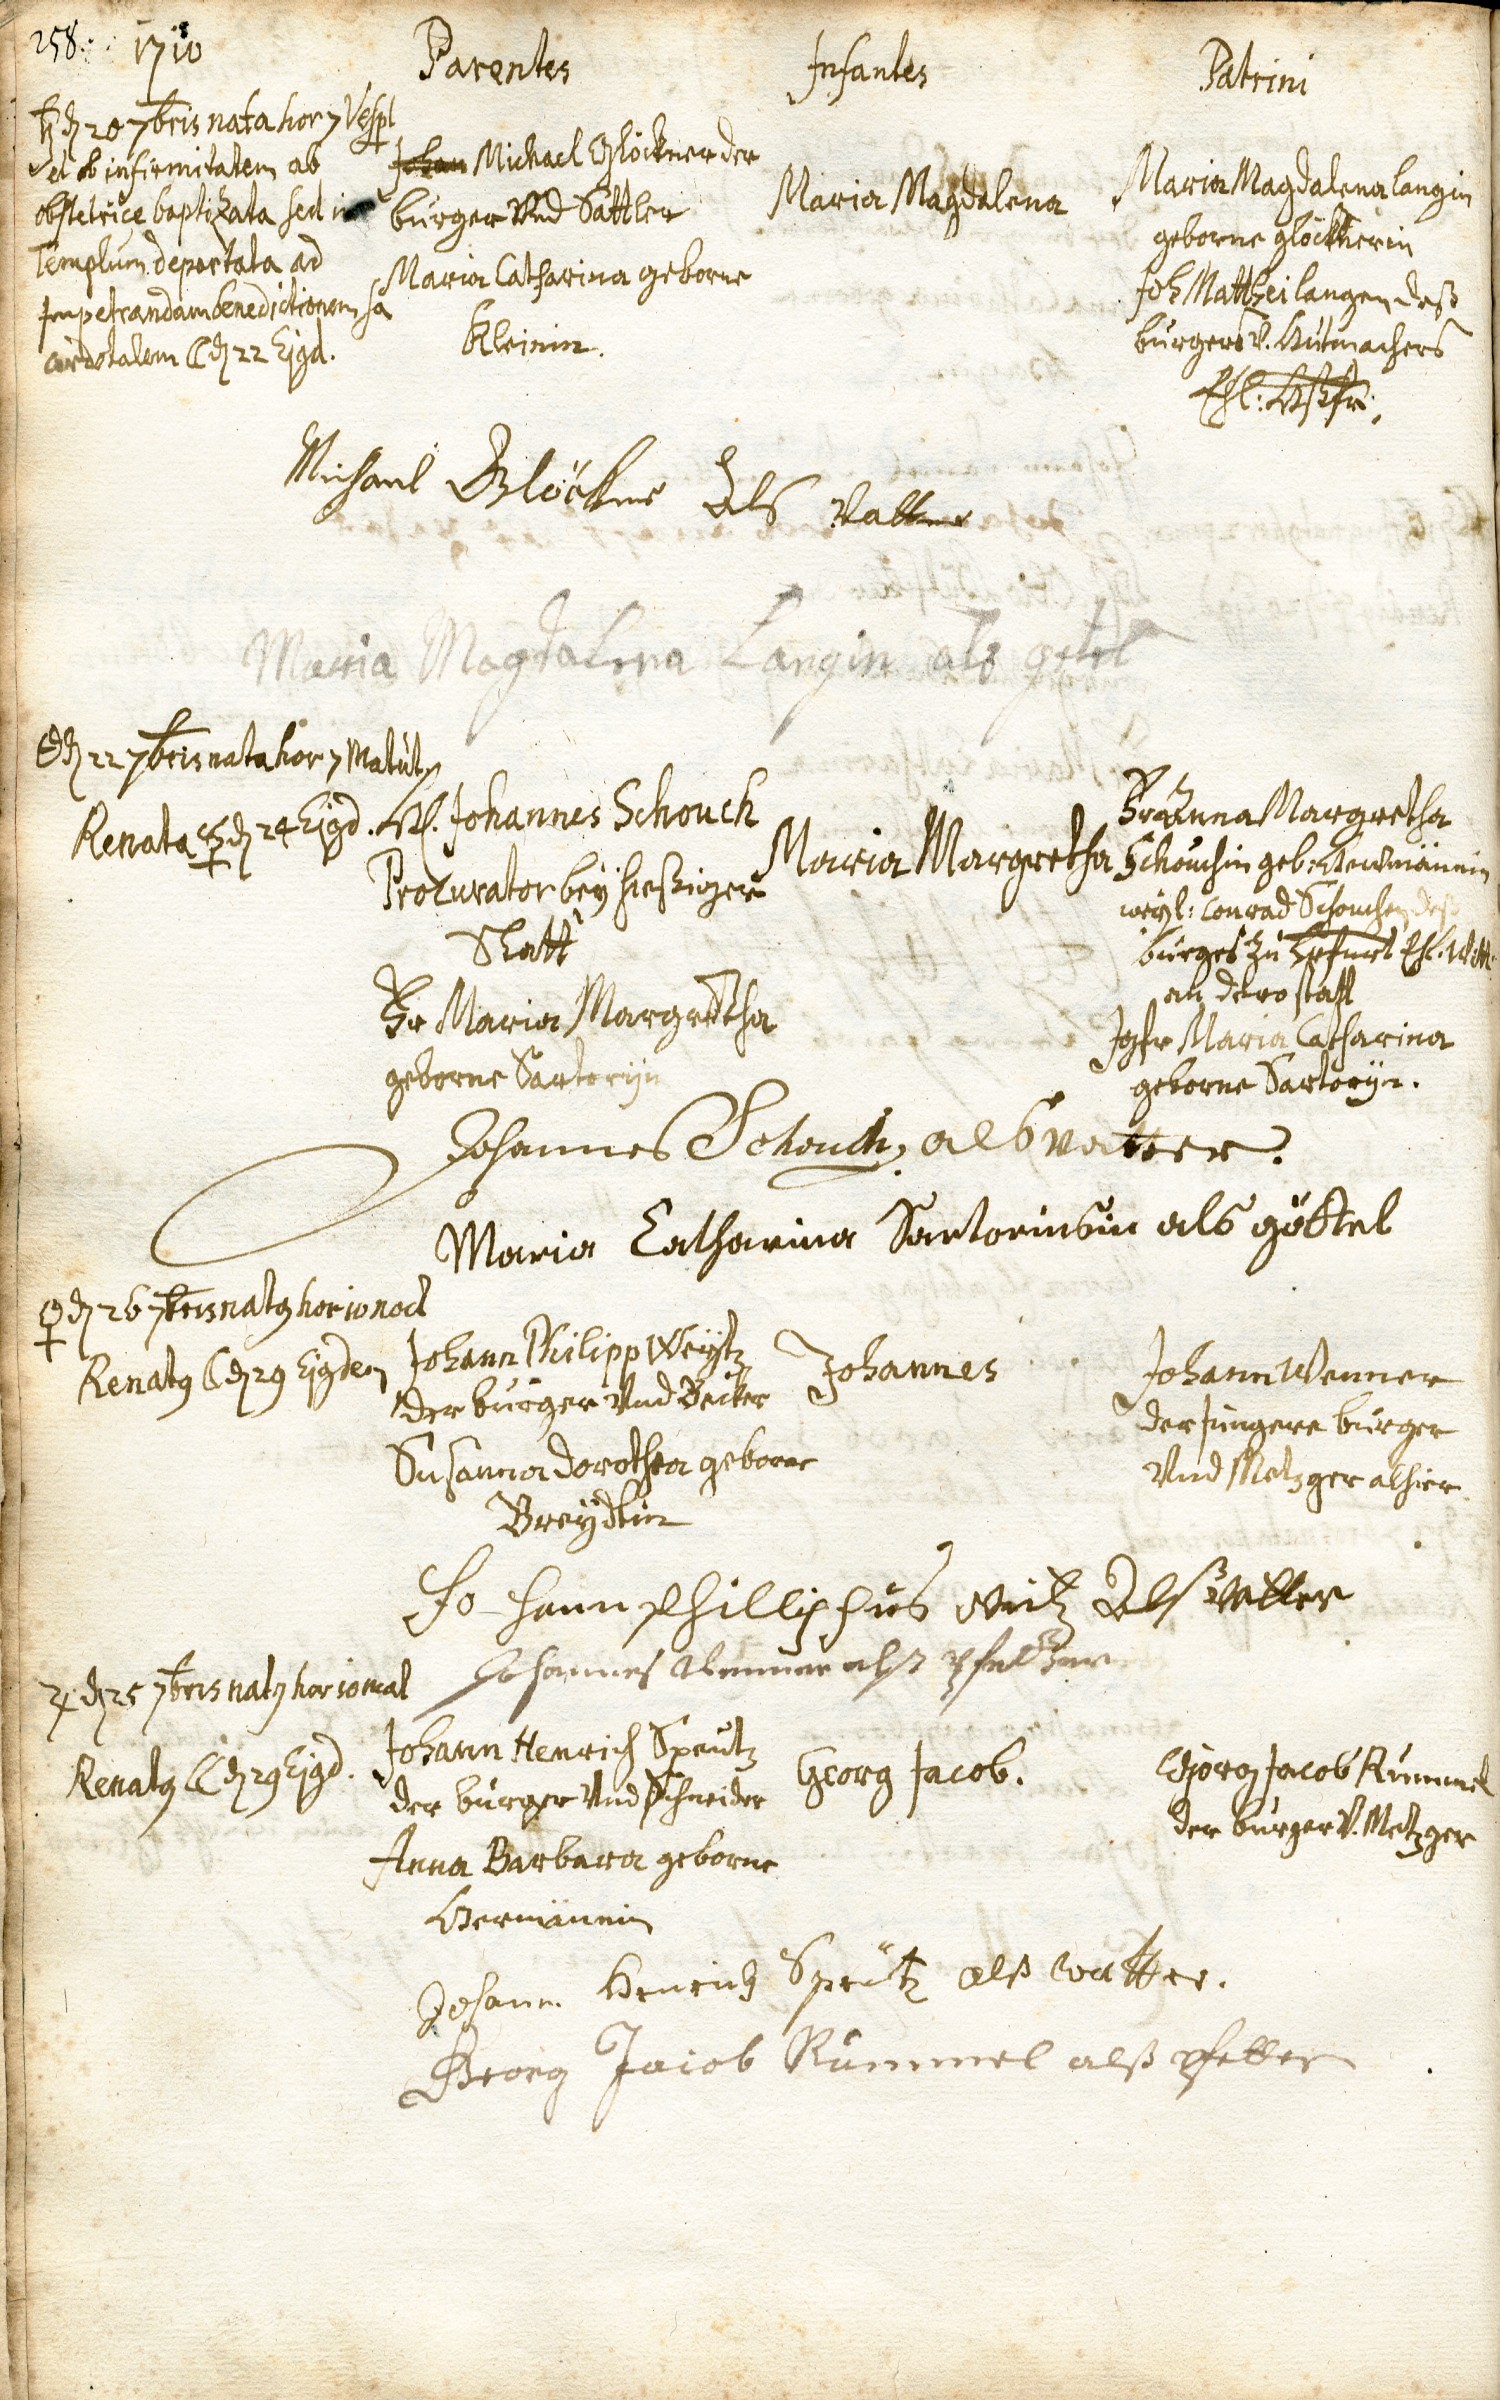 258. 1710
Parentes
Infantes
Patrini
♄ d 20 7bris nata hor 7 Vesp
et ob infirmitatem ab
obstetrice baptizata sed in
Templum deportata ad
Impetrandam benedictionem sa
cerdotalem ☾ d 22 Ejgd.
Johan Michael Glöckner der
burger Vnd Sattler
Maria Catharina geborne
Kleinin.
Maria Magdalena
Maria Magdalena langin
geborne glöcknerin
Joh Matthei langen deß
burgers V. Hutmachers
Ehl: Hßfr:
Michael Glöckner Als Vatter
Maria Magdalena Langin als getel
d 22 7bris nata hor 7 Matut
Renata d 24 Ejgd.
H. Johannes Schouch
Procurator bey hießiger
Statt
Fr Maria Margretha
geborne Sartoryn
Maria Margretha
Fr Anna Margretha
Schouchin geb:
weyl: Conrad Schouchen deß
burgers zu Ehl. Witt:
an dero statt
Jgfr Maria Catharina
geborne Sartoryn.
Johannes Schouch, als vatter.
Maria Catharina Sartoriusin als göttel
♀ d 26 7bris nat9 hor 10 noct
Renat9 ☾ d 29 Ejgdem
Johann Philipp Weytz
der burger Vnd Becker
Susanna dorothea geborne
Breydtin
Johannes
Johann Wenner
der Jüngere burger
Vnd Metzger alhier
Johann Phillippus Weitz Alß Vatter
Johannes Wenner alß Pfetter
♃ d 25 7bris nat9 hor 10 mat
Renat9 ☾ d 29 Ejgd.
Johann Henrich Speutz
der burger Vnd Schneider
Anna Barbara geborne
Hermännin
Georg Jacob.
Georg Jacob Rummel
der burger V. Metzger
Johann Henrich Speütz alß watter.
Georg Jacob Rummel alß pfetter